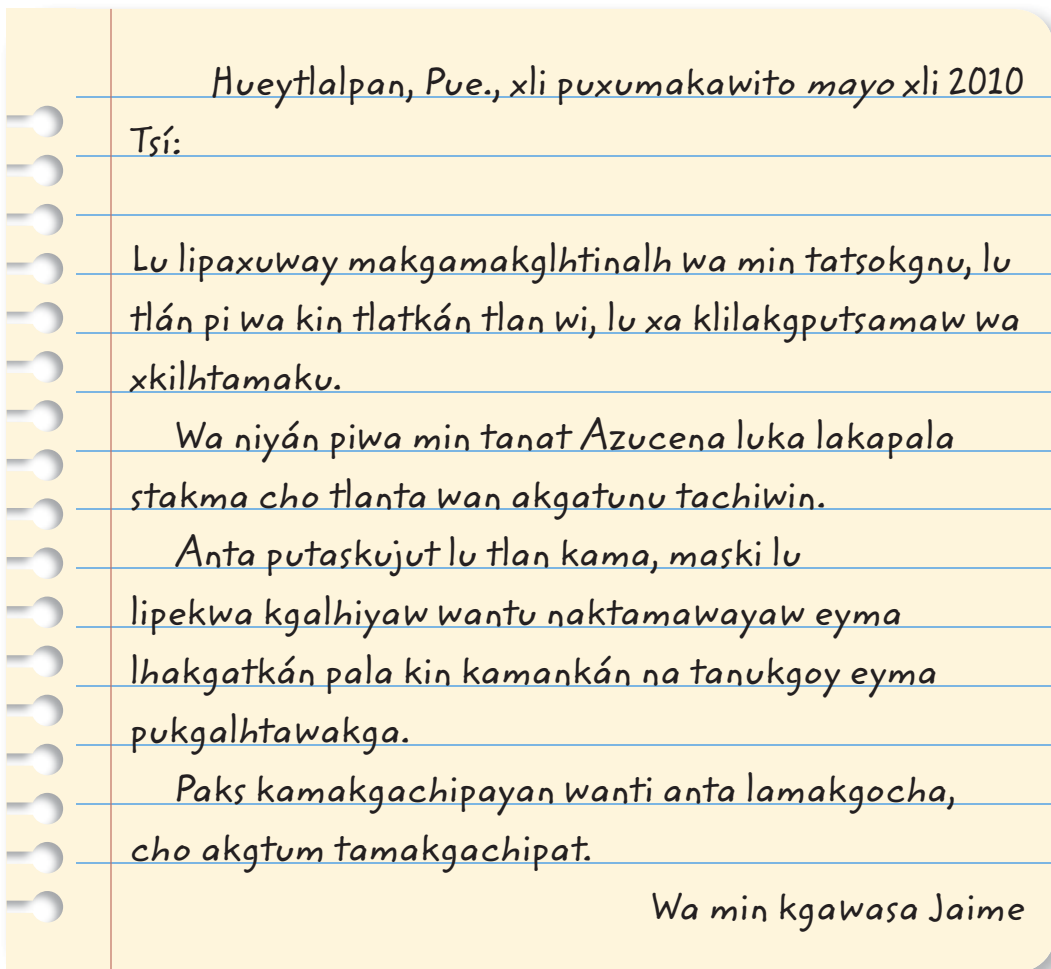 Hueytlalpan, Pue., xli puxumakawito mayo xli 2010
Tsí:
Lu lipaxuway makgamakglhtinalh wa min tatsokgnu, lu
tlán pi wa kin tlatkán tlan wi, lu xa klilakgputsamaw wa
xkilhtamaku.
Wa niyán piwa min tanat Azucena luka lakapala
stakma cho tlanta wan akgatunu tachiwin.
Anta putaskujut lu tlan kama, maski lu
lipekwa kgalhiyaw wantu naktamawayaw eyma
lhakgatkán pala kin kamankán na tanukgoy eyma
pukgalhtawakga.
Paks kamakgachipayan wanti anta lamakgocha,
cho akgtum tamakgachipat.
Wa min kgawasa Jaime